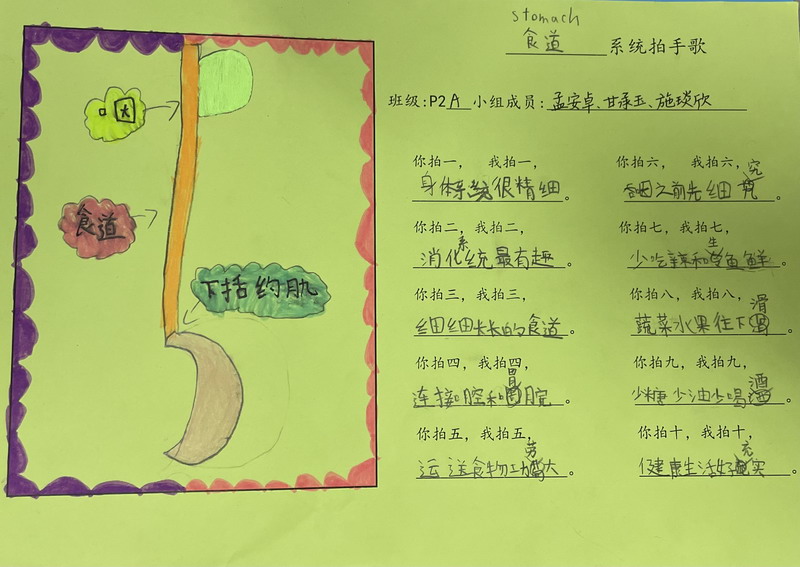 stomach
食道 系统拍手歌
班级:P2A 小组成员:孟安卓、甘承玉、施琰欣
口因
食道
下括约肌
你拍一， 我拍一，
身体系统很精细。
你拍二，我拍二，
消化系统最有趣。
你拍三，我拍三，
细细长长的食道。
你拍四，我拍四，
连接口腔和胃脘。
你拍五，我拍五，
运送食物功劳大。
你拍六， 我拍六，
吞咽之前先细究。
你拍七，我拍七，
少吃辣和生鱼鲜。
你拍八，我拍八，
蔬菜水果往下滑。
你拍九，我拍九，
少糖少油少喝酒。
你拍十，我拍十，
健康生活好充实。